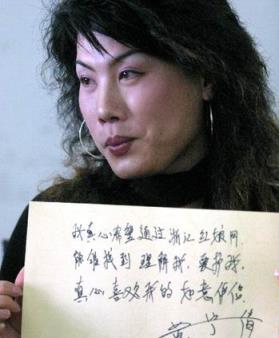 我真心希望通过浙江红娘网
能够找到理解我、爱护我、
真心喜欢我的如意伴侣